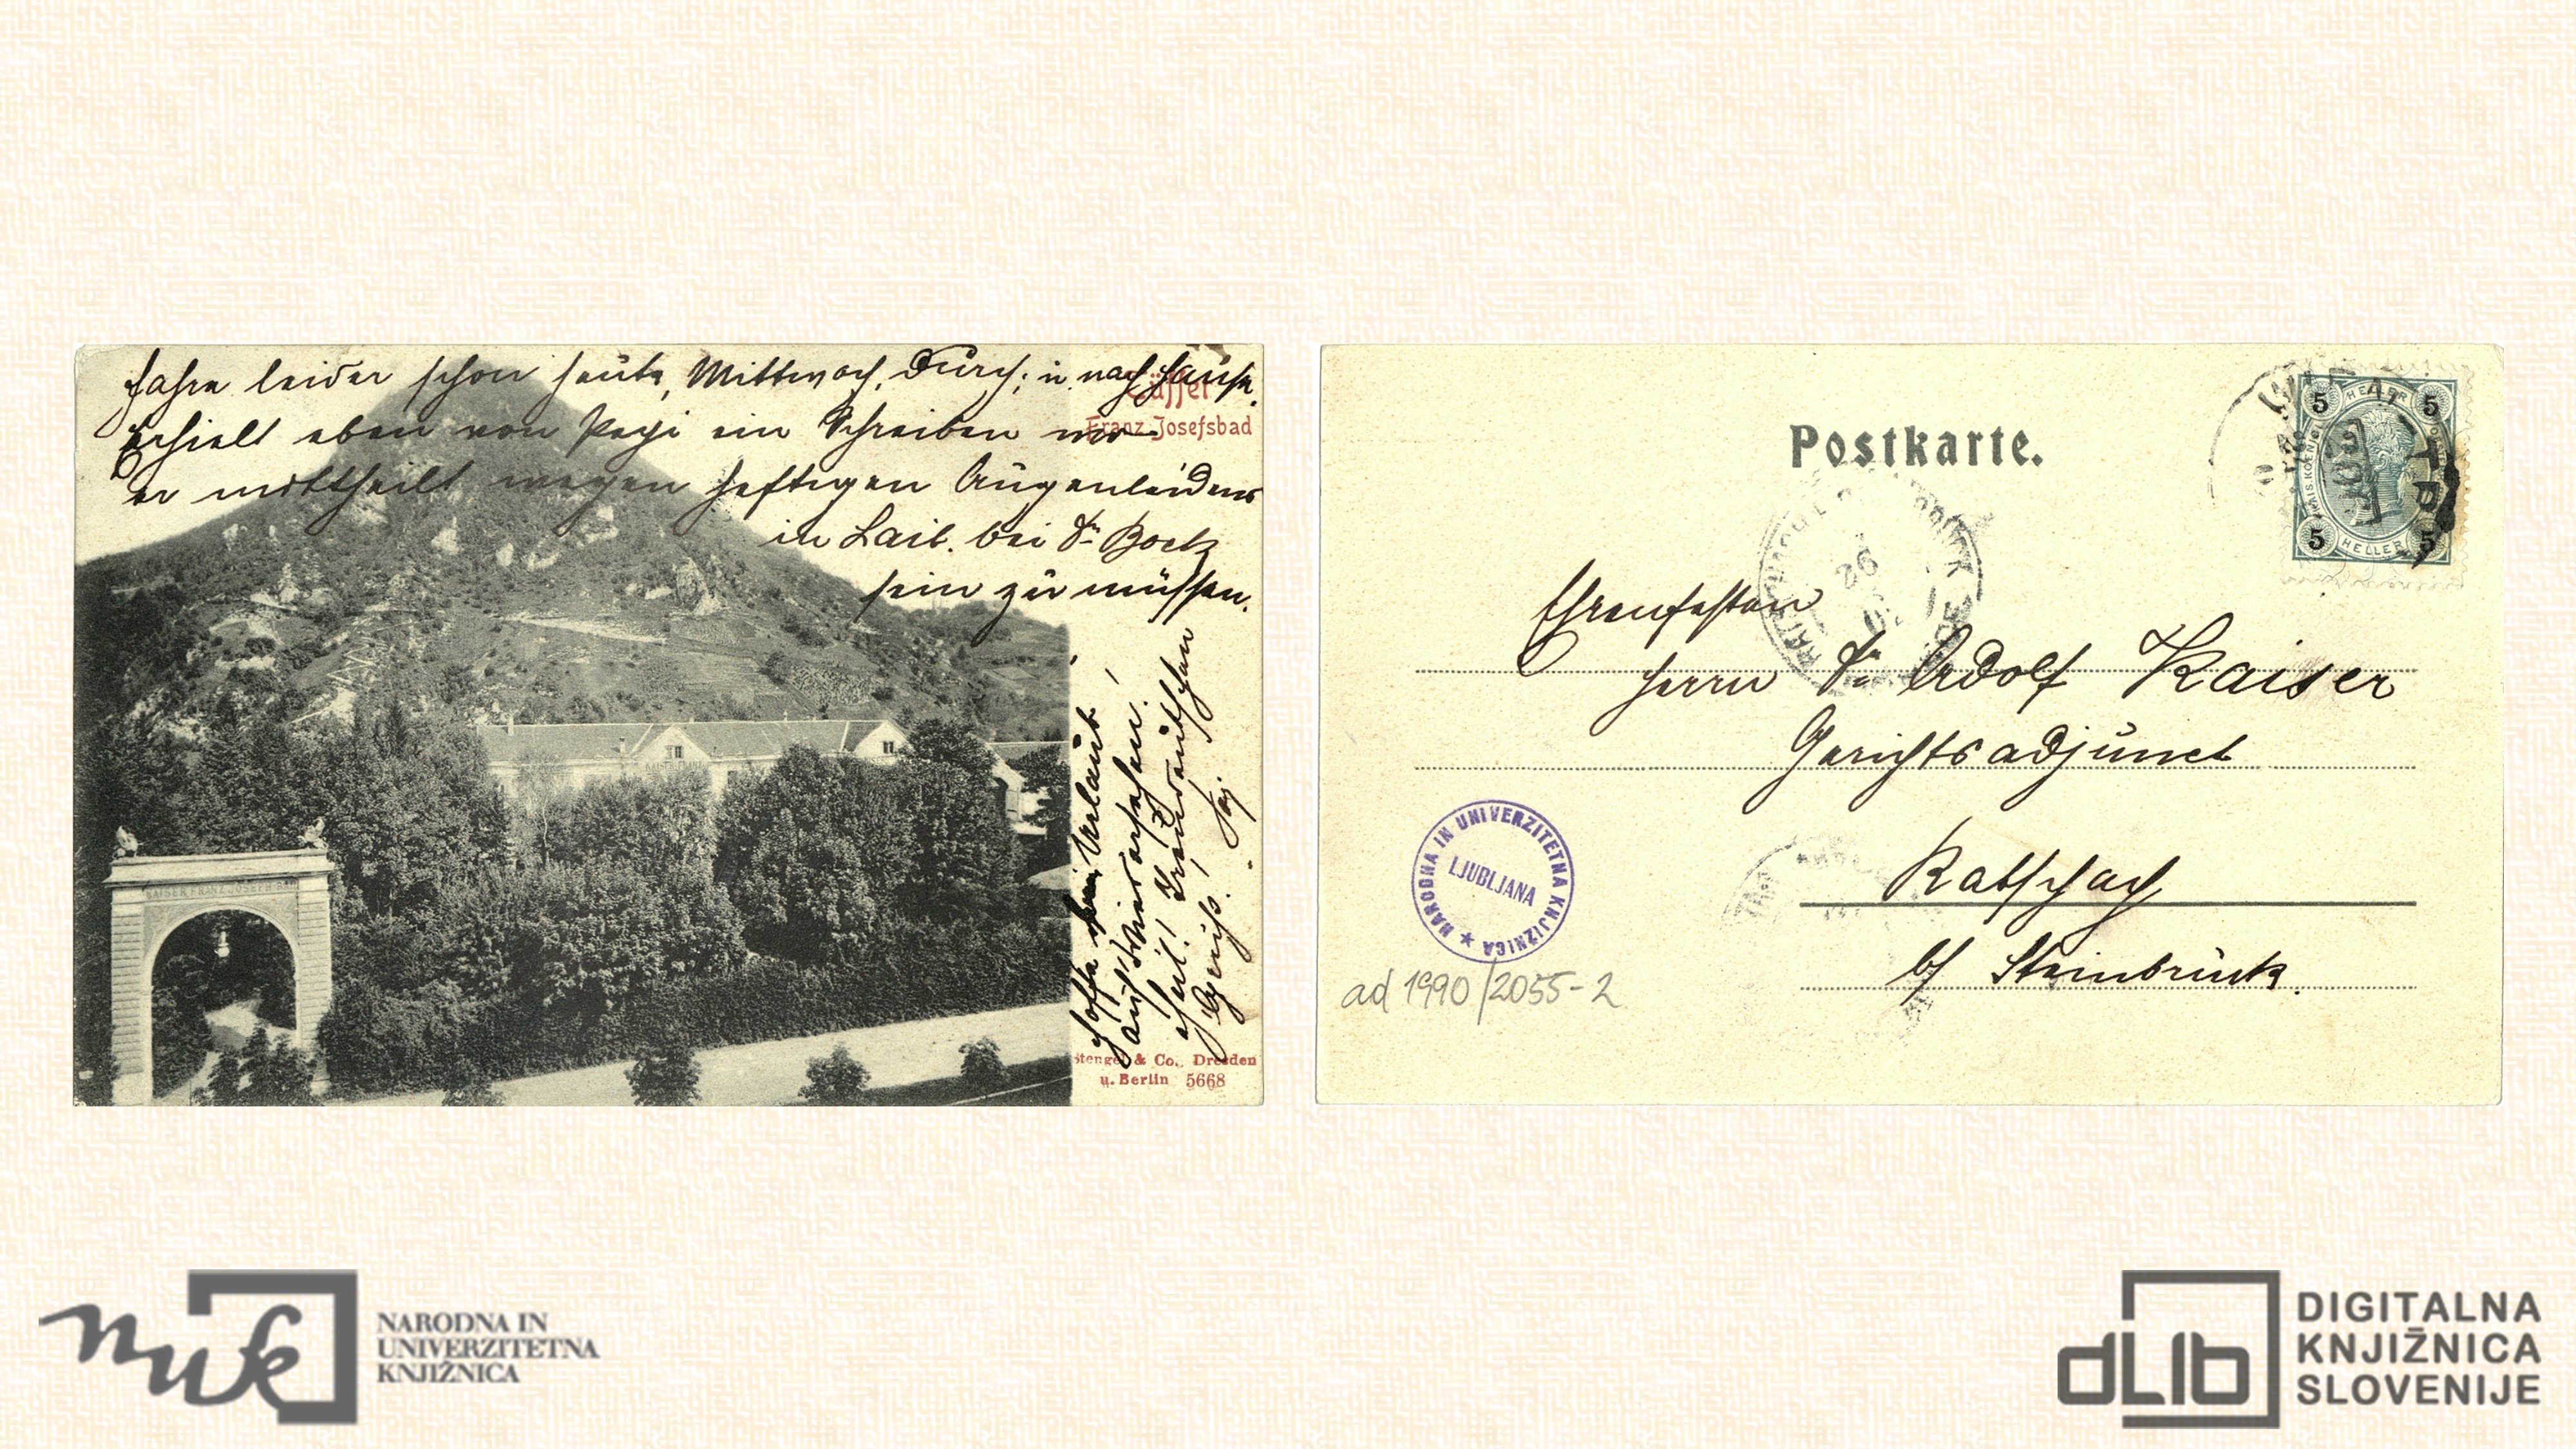 Fahre leider schon heute, Mittwoch, durch; u. nach Hause.
Erhielt eben von Pepi ein Schreiben wo
er mittheilt wegen heftigen Augenleidens
in Laib. bei Dr Bock
sein zu müssen.
Hoffe Urlaub!
auf Wiedersehen!
Heil!
Tüffer
Franz-Josefsbad
KAISER FRANZ JOSEPH BAD
Stengel & Co., Dresden
u. Berlin 5668
Postkarte.
5 HELLER 5
5 HELLER 5
26
Ehrenfesten
Herrn Dr Adolf Kaiser
Gerichtsadjunct
Ratschach
b/ Steinbrück.
NARODNA IN UNIVERZITETNA KNJIŽNICA
LJUBLJANA
ad 1990/2055-2
nuk
NARODNA IN
UNIVERZITETNA
KNJIŽNICA
dLib
DIGITALNA
KNJIŽNICA
SLOVENIJE